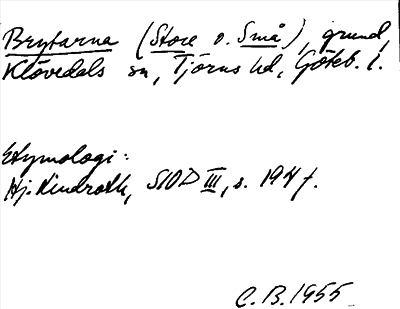 Brytarna (Store o. Små), grund,
Klövedals sn, Tjörns hd, Göteb. l.
Etymologi:
Hj. Lindroth, SIOD III, s. 194 f.
C.B. 1955